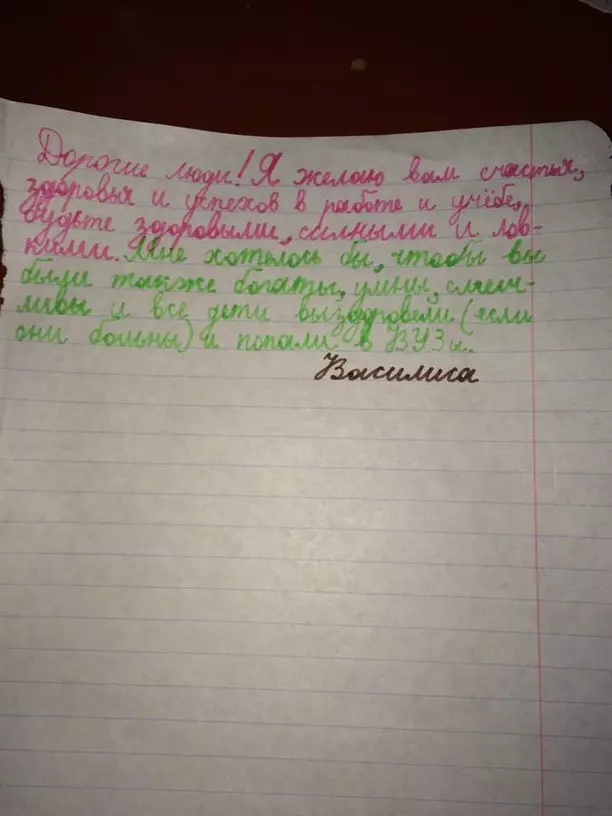 Дорогие люди! Я желаю вам счастья,
здоровья и успехов в работе и учёбе,
будьте здоровыми, сильными и лов-
кими. Мне хотелось бы, чтобы вы
были также богаты, умны,
и все дети выздоровели (если
они больны) и попали в ВУЗы.
Василиса